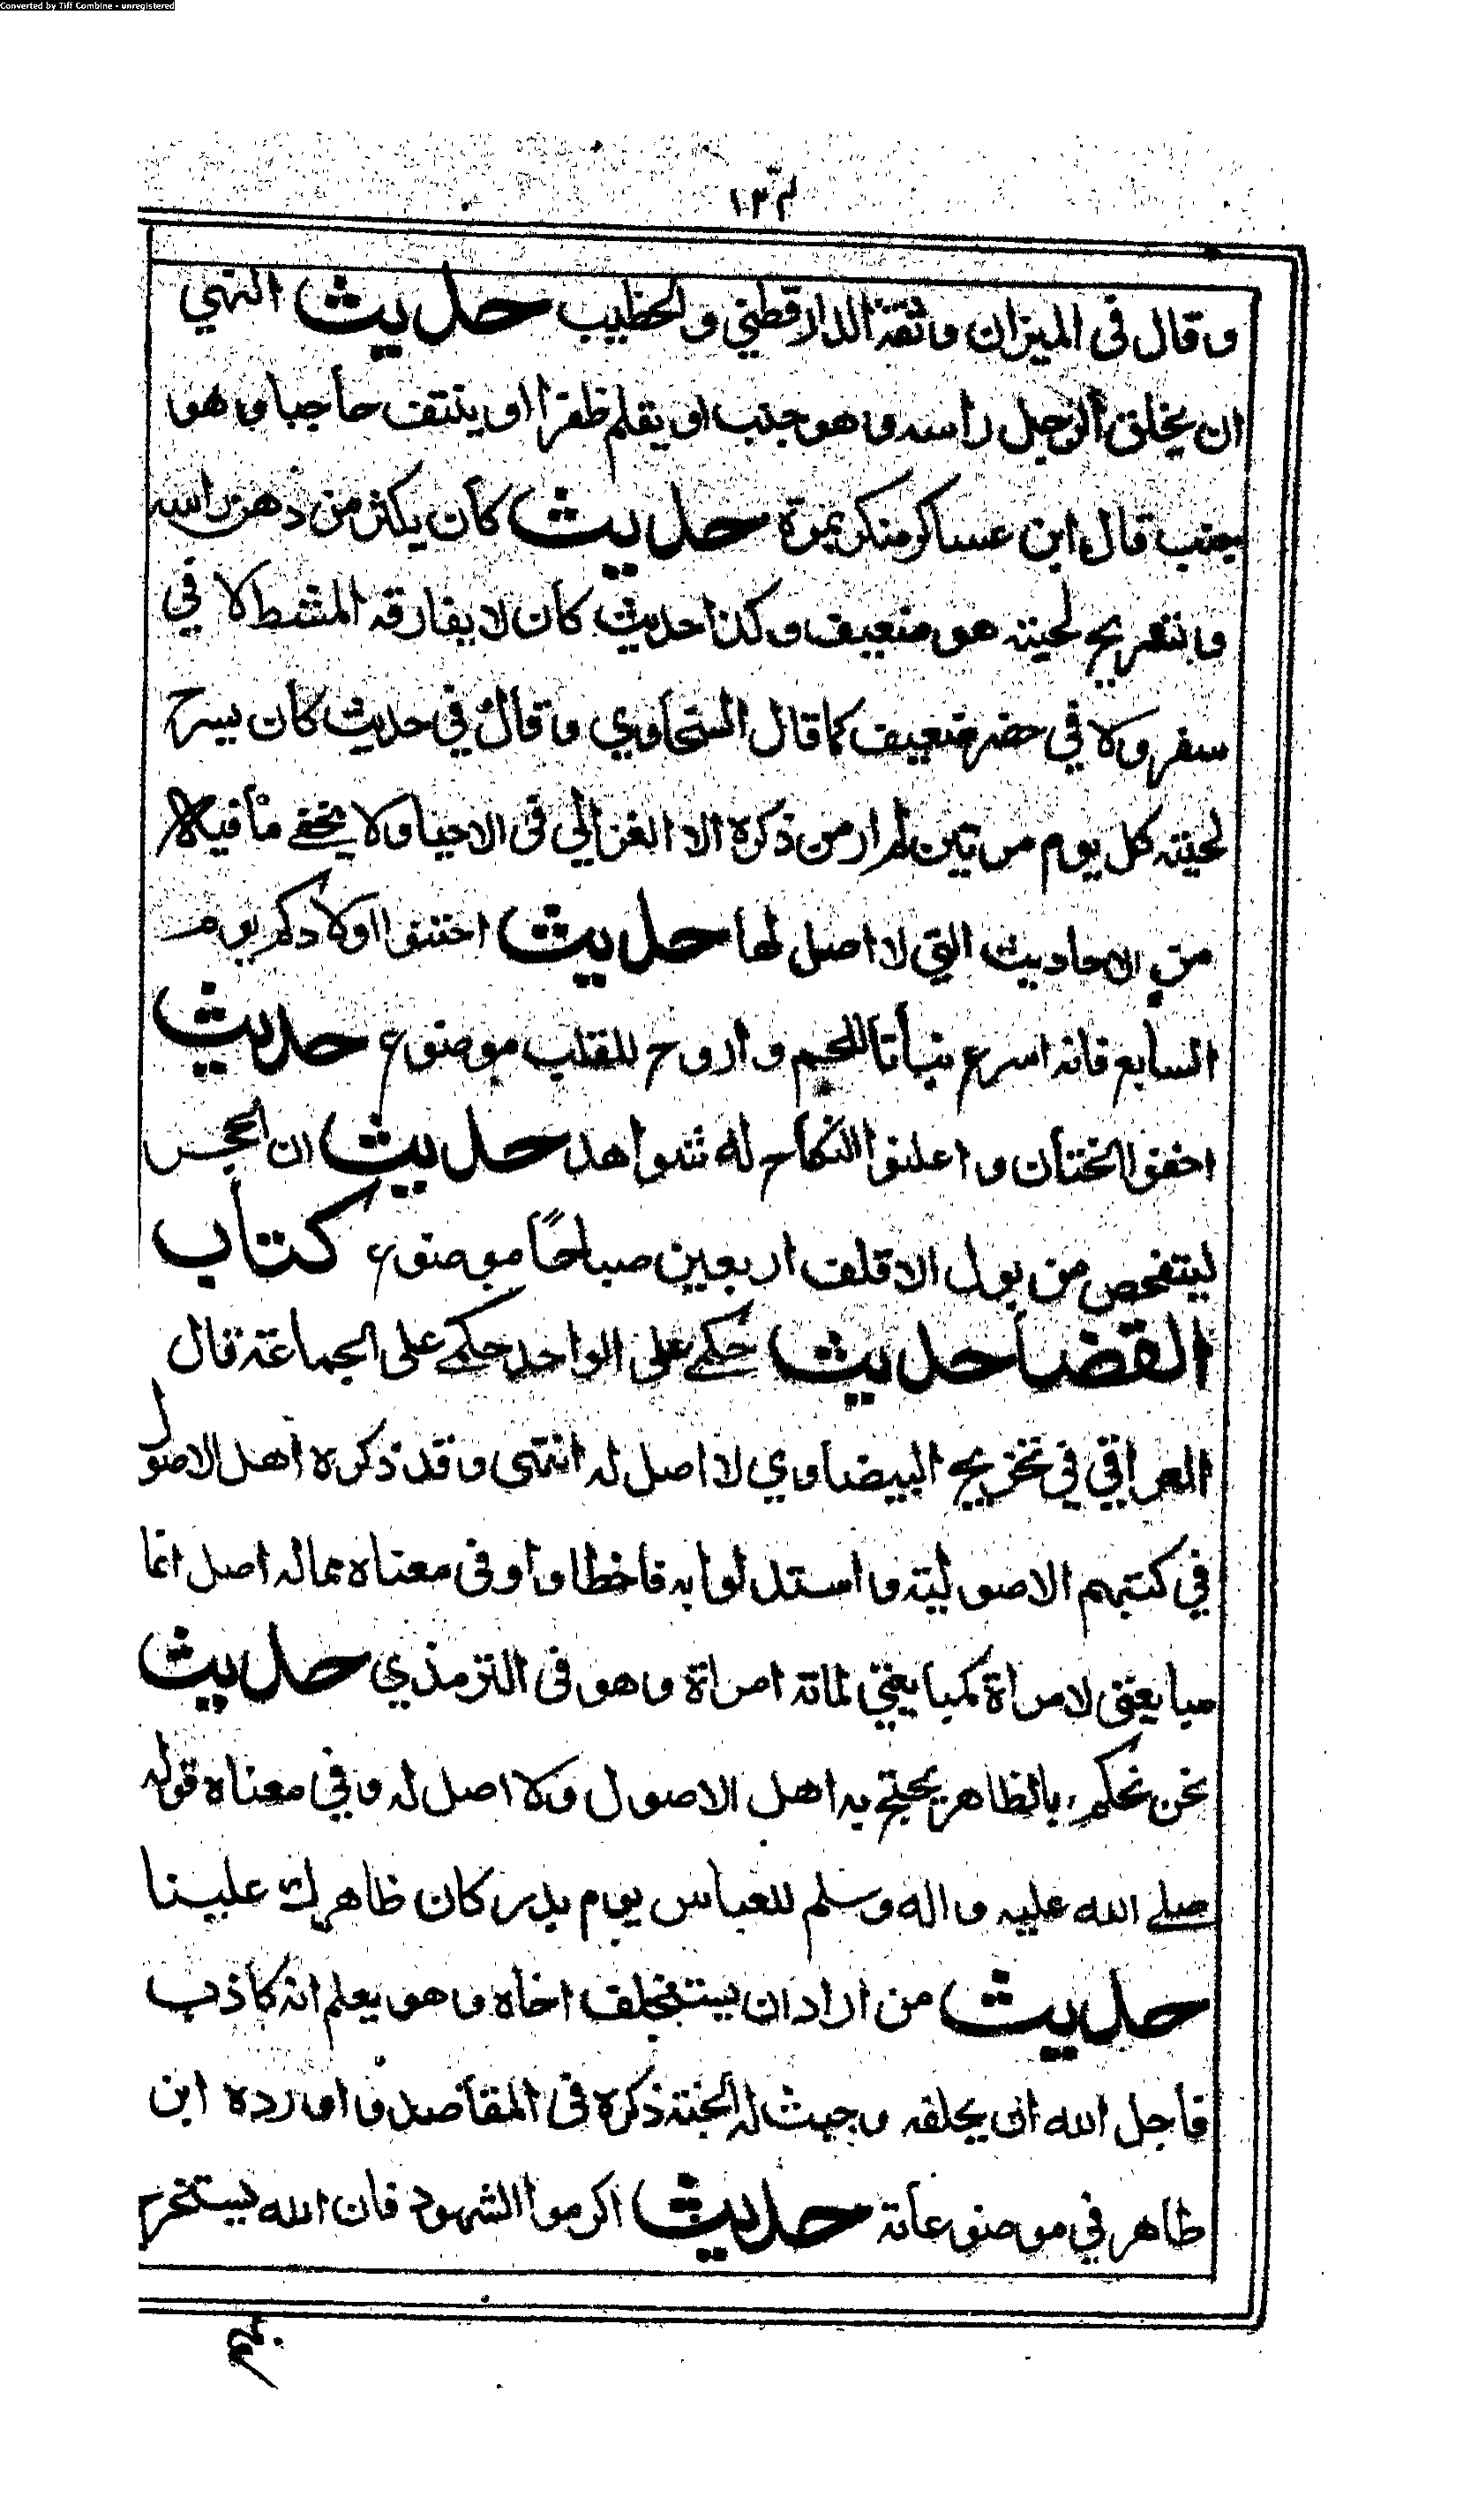 Converted by Tiff Combine - unregistered
١٣٤
وقال في الميزان وثقه الدارقطني والخطيب حديث النهي
ان يحلق الرجل راسه وهو جنب او يقلم ظفرا او ينتف حاجبا وهو
جنب قال ابن عساكر منكر بمرة حديث كان يكثر من دهن راسه
وبتسريح لحيته هو ضعيف وكذا حديث كان لا يفارقه المشط لا في
سفر ولا في حضر ضعيف كما قال السخاوي وقال في حديث كان يسرح
لحيته كل يوم مرتين لم ار من ذكره الا الغزالي في الاحيا ولا يخفى ما فيه
من الاحاديث التي لا اصل لها حديث اختنوا اولادكم يوم
السابع فانه اسرع نباتا للحم واروح للقلب موضوع حديث
اخفوا الختان واعلنوا النكاح له شواهد حديث ان الحجر
ليتفحص من بول الاقلف اربعين صباحًا موضوع كتاب
القضا حديث حكمي على الواحد حكمي على الجماعة قال
العراقي في تخريج البيضاوي لا اصل له انتهى وقد ذكره اهل الاصول
في كتبهم الاصولية واستدلوا به فاخطاوا وفي معناه مما له اصل انما
مبايعتي لامراة كمبايعتي لمائة امراة وهو في الترمذي حديث
نحن نحكم بالظاهر يحتج به اهل الاصول ولا اصل له وفي معناه قوله
صلى الله عليه واله وسلم للعباس يوم بدر كان ظاهرك علينا
حديث من اراد ان يستحلف اخاه وهو يعلم انه كاذب
فاجل الله ان يحلفه وجبت له الجنة ذكره في المقاصد واورده ابن
طاهر في موضوعاته حديث اكرموا الشهود فان الله يستخرج